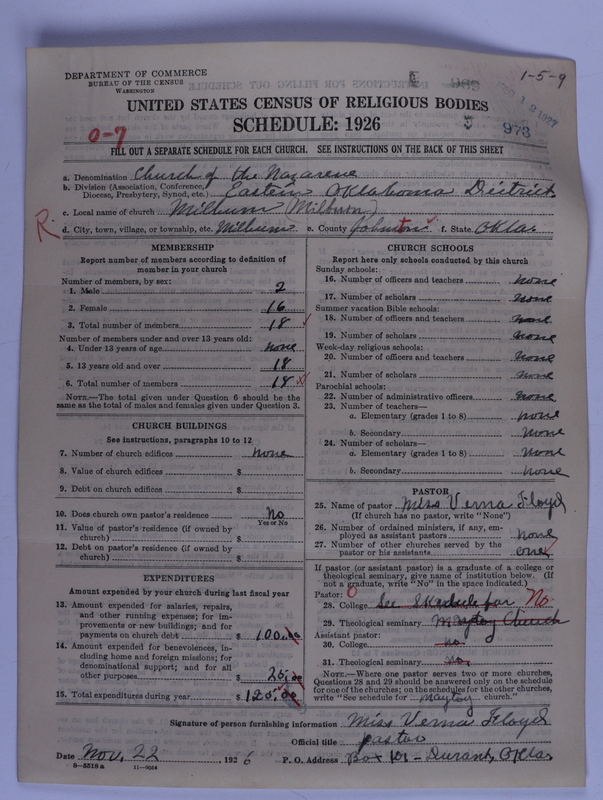 DEPARTMENT OF COMMERCE
BUREAU OF THE CENSUS
WASHINGTON
1-5-9
UNITED STATES CENSUS OF RELIGIOUS BODIES
SCHEDULE: 1926
0-7
973
FILL OUT A SEPARATE SCHEDULE FOR EACH CHURCH. SEE INSTRUCTIONS ON THE BACK OF THIS SHEET
a. Denomination Church of the Nazarene
b. Division (Association, Conference, Diocese, Presbytery, Synod, etc.) Eastern Oklahoma District
c. Local name of church Milburn (Milburn)
R.
d. City, town, village, or township, etc. Milburn e. County Johnston f. State Okla.
MEMBERSHIP
Report number of members according to definition of
member in your church
Number of members, by sex:
1. Male 2
2. Female 16
3. Total number of members 18
Number of members under and over 13 years old:
4. Under 13 years of age none
5. 13 years old and over 18
6. Total number of members 18
NOTE.—The total given under Question 6 should be
same as the total of males and females given under Question 3.
CHURCH BUILDINGS
See instructions, paragraphs 10 to 12
7. Number of church edifices none
8. Value of church edifices $
9. Debt on church edifices $
10. Does church own pastor's residence? No
Yes or No
11. Value of pastor's residence (if owned by
church) $
12. Debt on pastor's residence (if owned by
church) $
EXPENDITURES
Amount expended by your church during last fiscal year
13. Amount expended for salaries, repairs,
and other running expenses; for im-
provements or new buildings; and for
payments on church debt $ 100.00
14. Amount expended for benevolences, in-
cluding home and foreign missions; for
denominational support; and for all
other purposes $ 20.00
15. Total expenditures during year $ 120.00
CHURCH SCHOOLS
Report here only schools conducted by this church
Sunday schools:
16. Number of officers and teachers none
17. Number of scholars none
Summer vacation Bible schools:
18. Number of officers and teachers none
19. Number of scholars none
Week-day religious schools:
20. Number of officers and teachers none
21. Number of scholars none
Parochial schools:
22. Number of administrative officers none
23. Number of teachers—
a. Elementary (grades 1 to 8) none
b. Secondary none
24. Number of scholars—
a. Elementary (grades 1 to 8) none
b. Secondary none
PASTOR
25. Name of pastor Miss Verna Floyd
(If church has no pastor, write "None")
26. Number of ordained ministers, if any, em-
ployed as assistant pastors none
27. Number of other churches served by the
pastor or his assistants one
If pastor (or assistant pastor) is a graduate of a college or
theological seminary, give name of institution below. (If
not a graduate, write "No" in the space indicated.)
Pastor: 0
28. College See Schedule for No
29. Theological seminary Maytoy Church
Assistant pastor:
30. College no
31. Theological seminary no
NOTE.—Where one pastor serves two or more churches,
Questions 28 and 29 should be answered only on the schedule
for one of the churches; on the schedules for the other churches,
write "See schedule for Maytoy church."
Signature of person furnishing information Miss Verna Floyd
Official title pastor
Date Nov. 22 1926 P. O. Address Box 101 - Durant, Okla.
8-5518 a 11-9054